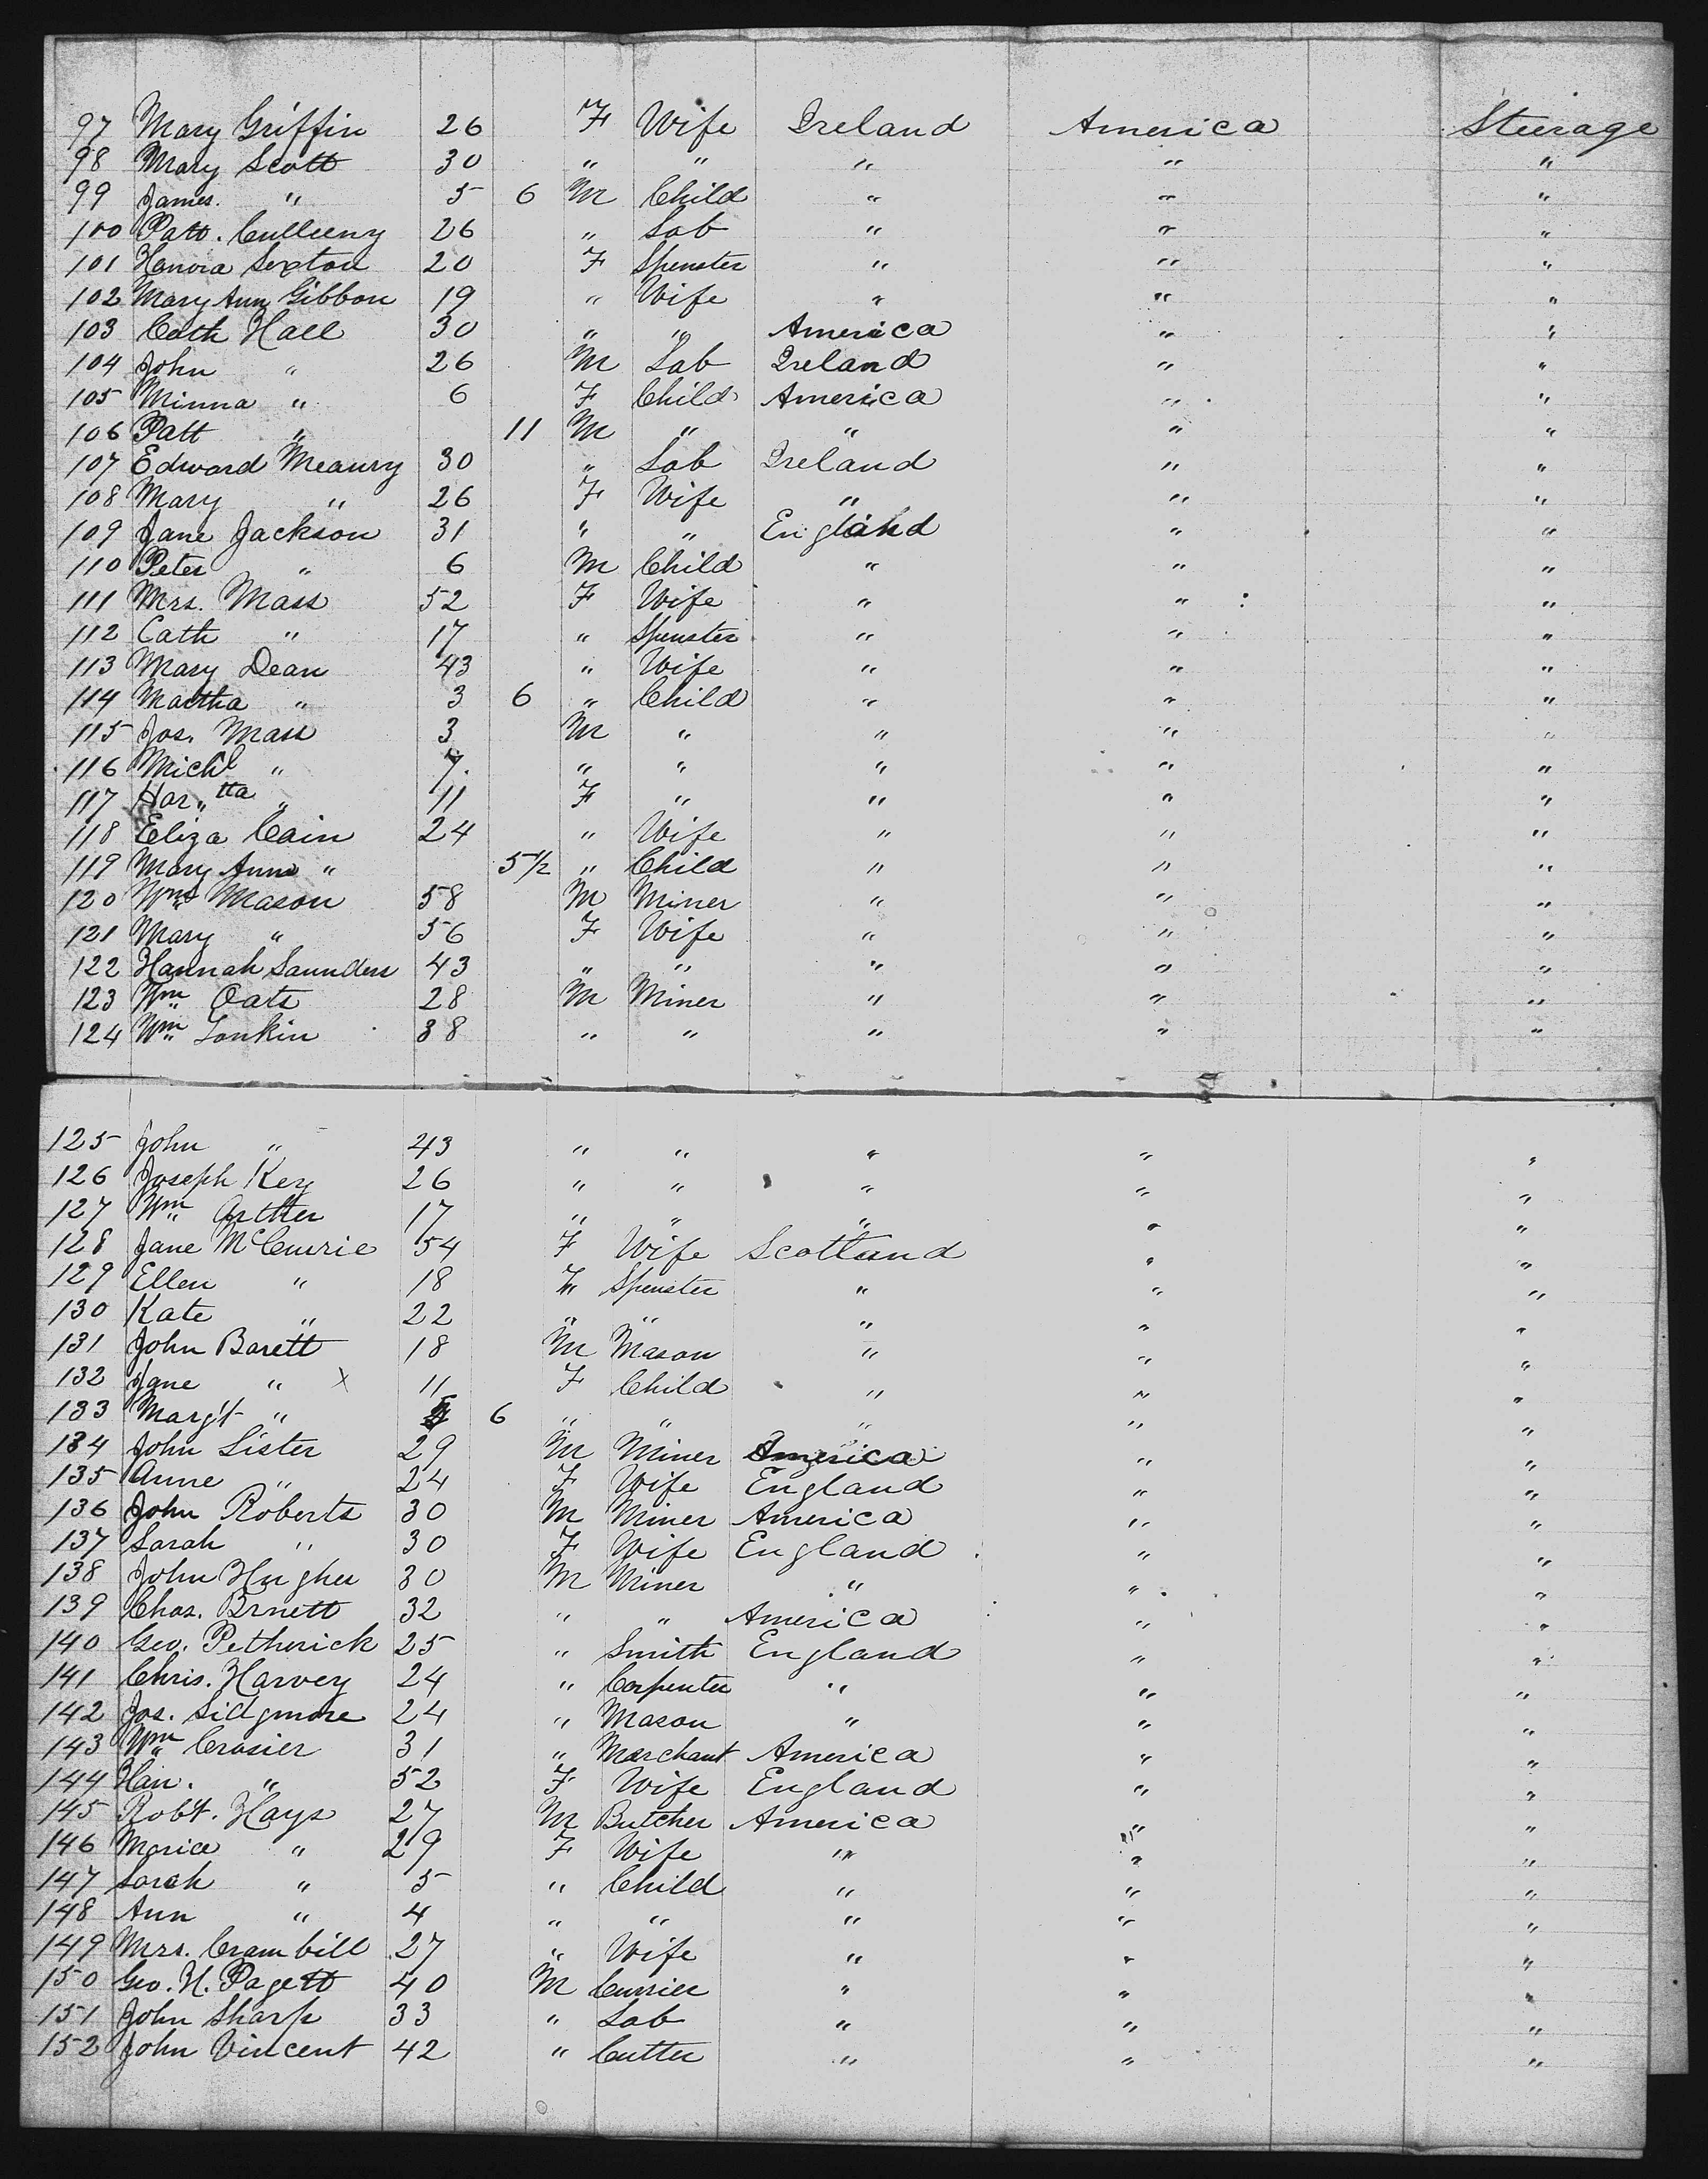 97 Mary Griffin 26 F Wife Ireland America Steerage
98 Mary Scott 30 " " " " "
99 James. " 5 6 M Child " " "
100 Patt. Culleeny 26 " Lab " " "
101 Hanora Sexton 20 F Spenster " " "
102 Mary Ann Gibbon 19 " Wife " " "
103 Cath Hall 30 " " America " "
104 John " 26 M Lab Ireland " "
105 Minna " 6 F Child America " "
106 Patt " 11 M " " " "
107 Edward Meaury 30 " Lab Ireland " "
108 Mary " 26 F Wife " " "
109 Jane Jackson 31 " " England " "
110 Peter " 6 M Child " " "
111 Mrs. Mass 52 F Wife " " "
112 Cath " 17 " Spenster " " "
113 Mary Dean 43 " Wife " " "
114 Martha " 3 6 " Child " " "
115 Jos. Mass 3 M " " " "
116 Mich'l " 7 " " " " "
117 Har"tta " 11 F " " " "
118 Eliza Cain 24 " Wife " " "
119 Mary Ann " 5 1/2 " Child " " "
120 Wm Mason 58 M Miner " " "
121 Mary " 56 F Wife " " "
122 Hannah Saunders 43 " " " " "
123 Wm Oats 28 M Miner " " "
124 Wm Tonkin 38 " " " " "
125 John " 43 " " " " "
126 Joseph Key 26 " " " " "
127 Wm Arther 17 " " " " "
128 Jane McCurrie 54 F Wife Scotland " "
129 Ellen " 18 F Spenster " " "
130 Kate " 22 " " " " "
131 John Barett 18 M Mason " " "
132 Jane " X 11 F Child " " "
133 Marg't " 6 " " " " "
134 John Lister 29 M Miner America " "
135 Anne " 24 F Wife England " "
136 John Roberts 30 M Miner America " "
137 Sarah " 30 F Wife England " "
138 John Hughes 30 M Miner " " "
139 Chas. Brnett 32 " " America " "
140 Geo. Petherick 25 " Smith England " "
141 Chris. Harvey 24 " Carpenter " " "
142 Jos. Sidgmore 24 " Mason " " "
143 Wm Crosier 31 " Marchant America " "
144 Han. " 52 F Wife England " "
145 Robt. Hays 27 M Butcher America " "
146 Marice " 29 F Wife " " "
147 Sarah " 5 " Child " " "
148 Ann " 4 " " " " "
149 Mrs. Crambill 27 " Wife " " "
150 Geo. H. Pagett 40 M Currier " " "
151 John Sharp 33 " Lab " " "
152 John Vincent 42 " Cutter " " "